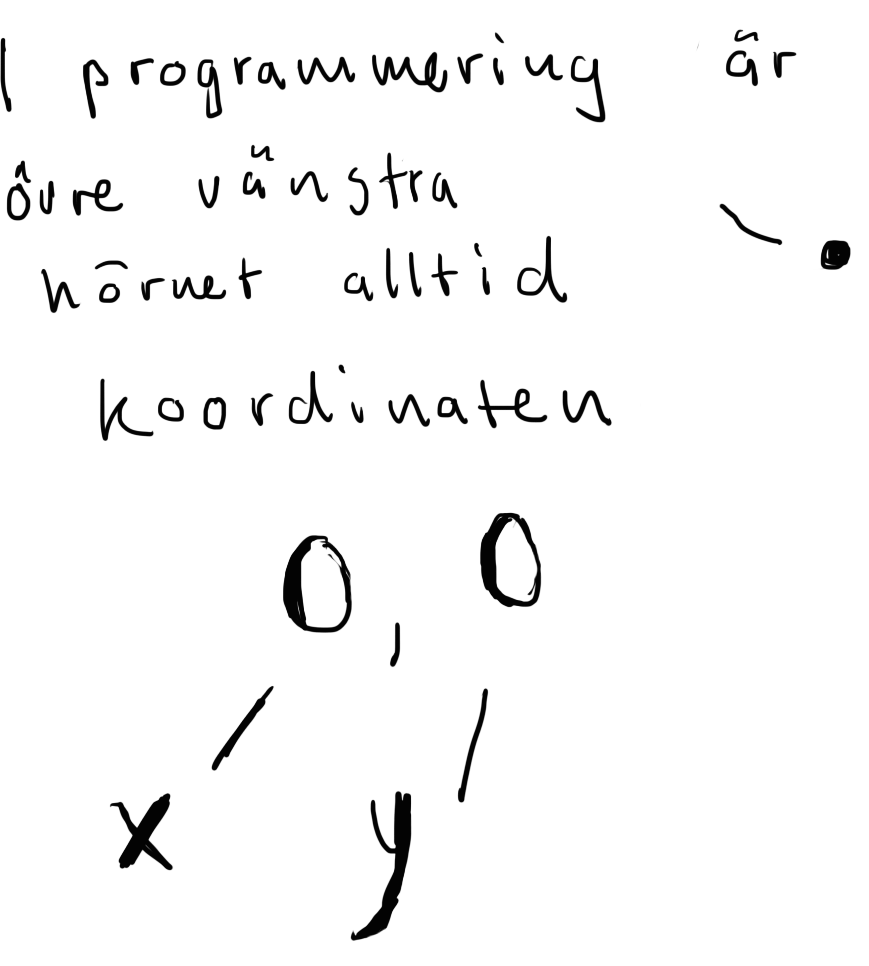 I programmering är
övre vänstra
hörnet alltid
koordinaten
0, 0
x y